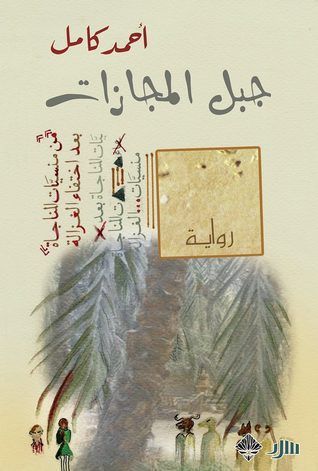 أحمد كامل
جبل المجازات
من منسيات المناجاة
بعد اختفاء الغزالة
رواية
سرد